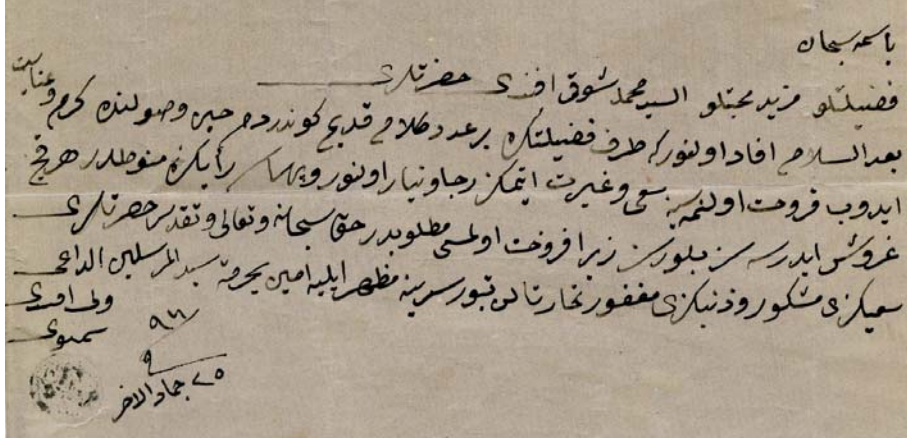 باسمه سبحانه
فضيلتلو مزيد محبتلو السيد محمد شوقى افندى حضرتلرى
بعد السلام افاد اولنور كه طرف فضيلتكزه بر عدد كلام قديم كوندردم حين وصولنده كرم وعنايت
ايدوب فروخت اولنمه‌سينه سعى وغيرت ايتمكز رجا ونياز اولنور وبهاسى رأيكزه منوطدر هر قچ
غروش ايدرسه سز بلورسز زيرا فروخت اولمسى مطلوبدر حق سبحانه وتعالى وتقدس حضرتلرى
سعيكزى مشكور وذنبكزى مغفور تجارتا لن تبور سرينه مظهر ايليه امين بحرمة سيد المرسلين الداعى
ولى افندى
سمنوى
٩٦
٢٥ جماد الاخر